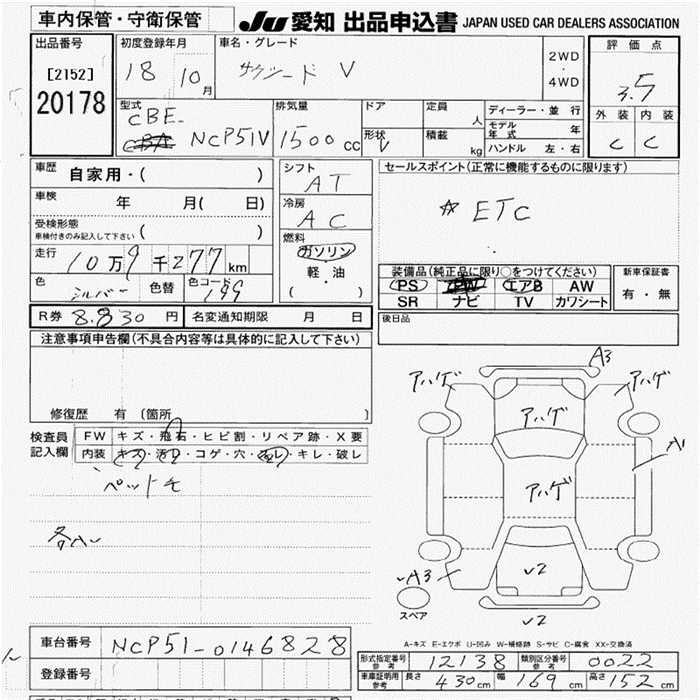 車内保管・守衛保管
JU 愛知 出品申込書 JAPAN USED CAR DEALERS ASSOCIATION
出品番号
[2152]
20178
初度登録年月
18 10月
車名・グレード
サクシード V
2WD
・
4WD
評価点
3.5
外装 内装
C C
型式
CBE-
CBA NCP51V
排気量
1500 cc
ドア
形状
V
定員 人
積載 kg
ディーラー・並行
モデル年式 年
ハンドル 左・右
車歴 自家用・( )
車検 年 月( 日)
受検形態
車検付きのみ記入して下さい ( )
走行 10万9千277km
色 シルバー 色替 色コード 199
シフト
AT
冷房
AC
燃料
ガソリン
軽・油
( )
セールスポイント(正常に機能するものに限ります)
☆ ETC
装備品(純正品に限り○をつけてください)
PS PW エアB AW
SR ナビ TV カワシート
新車保証書
有・無
R券 8.830円 名変通知期限 月 日
後日品
注意事項申告欄(不具合内容等は具体的に記入して下さい)
修復歴 有 (箇所 )
検査員
記入欄
FW キズ・飛石・ヒビ割・リペア跡・X要
内装 キズ・汚れ・コゲ・穴・・キレ・破レ
ペットモ
各A
A3
アハゲ アハゲ
アハゲ
A1
アハゲ
√A3
√2
√2
スペア
A-キズ E-エクボ U-凹み W-補修跡 S-サビ C-腐食 XX-交換済
車台番号 NCP51-0146828
登録番号
形式指定番号 参考 12138 類別区分番号 参考 0022
車庫証明用 参考 長さ 430cm 幅 169cm 高さ 152cm